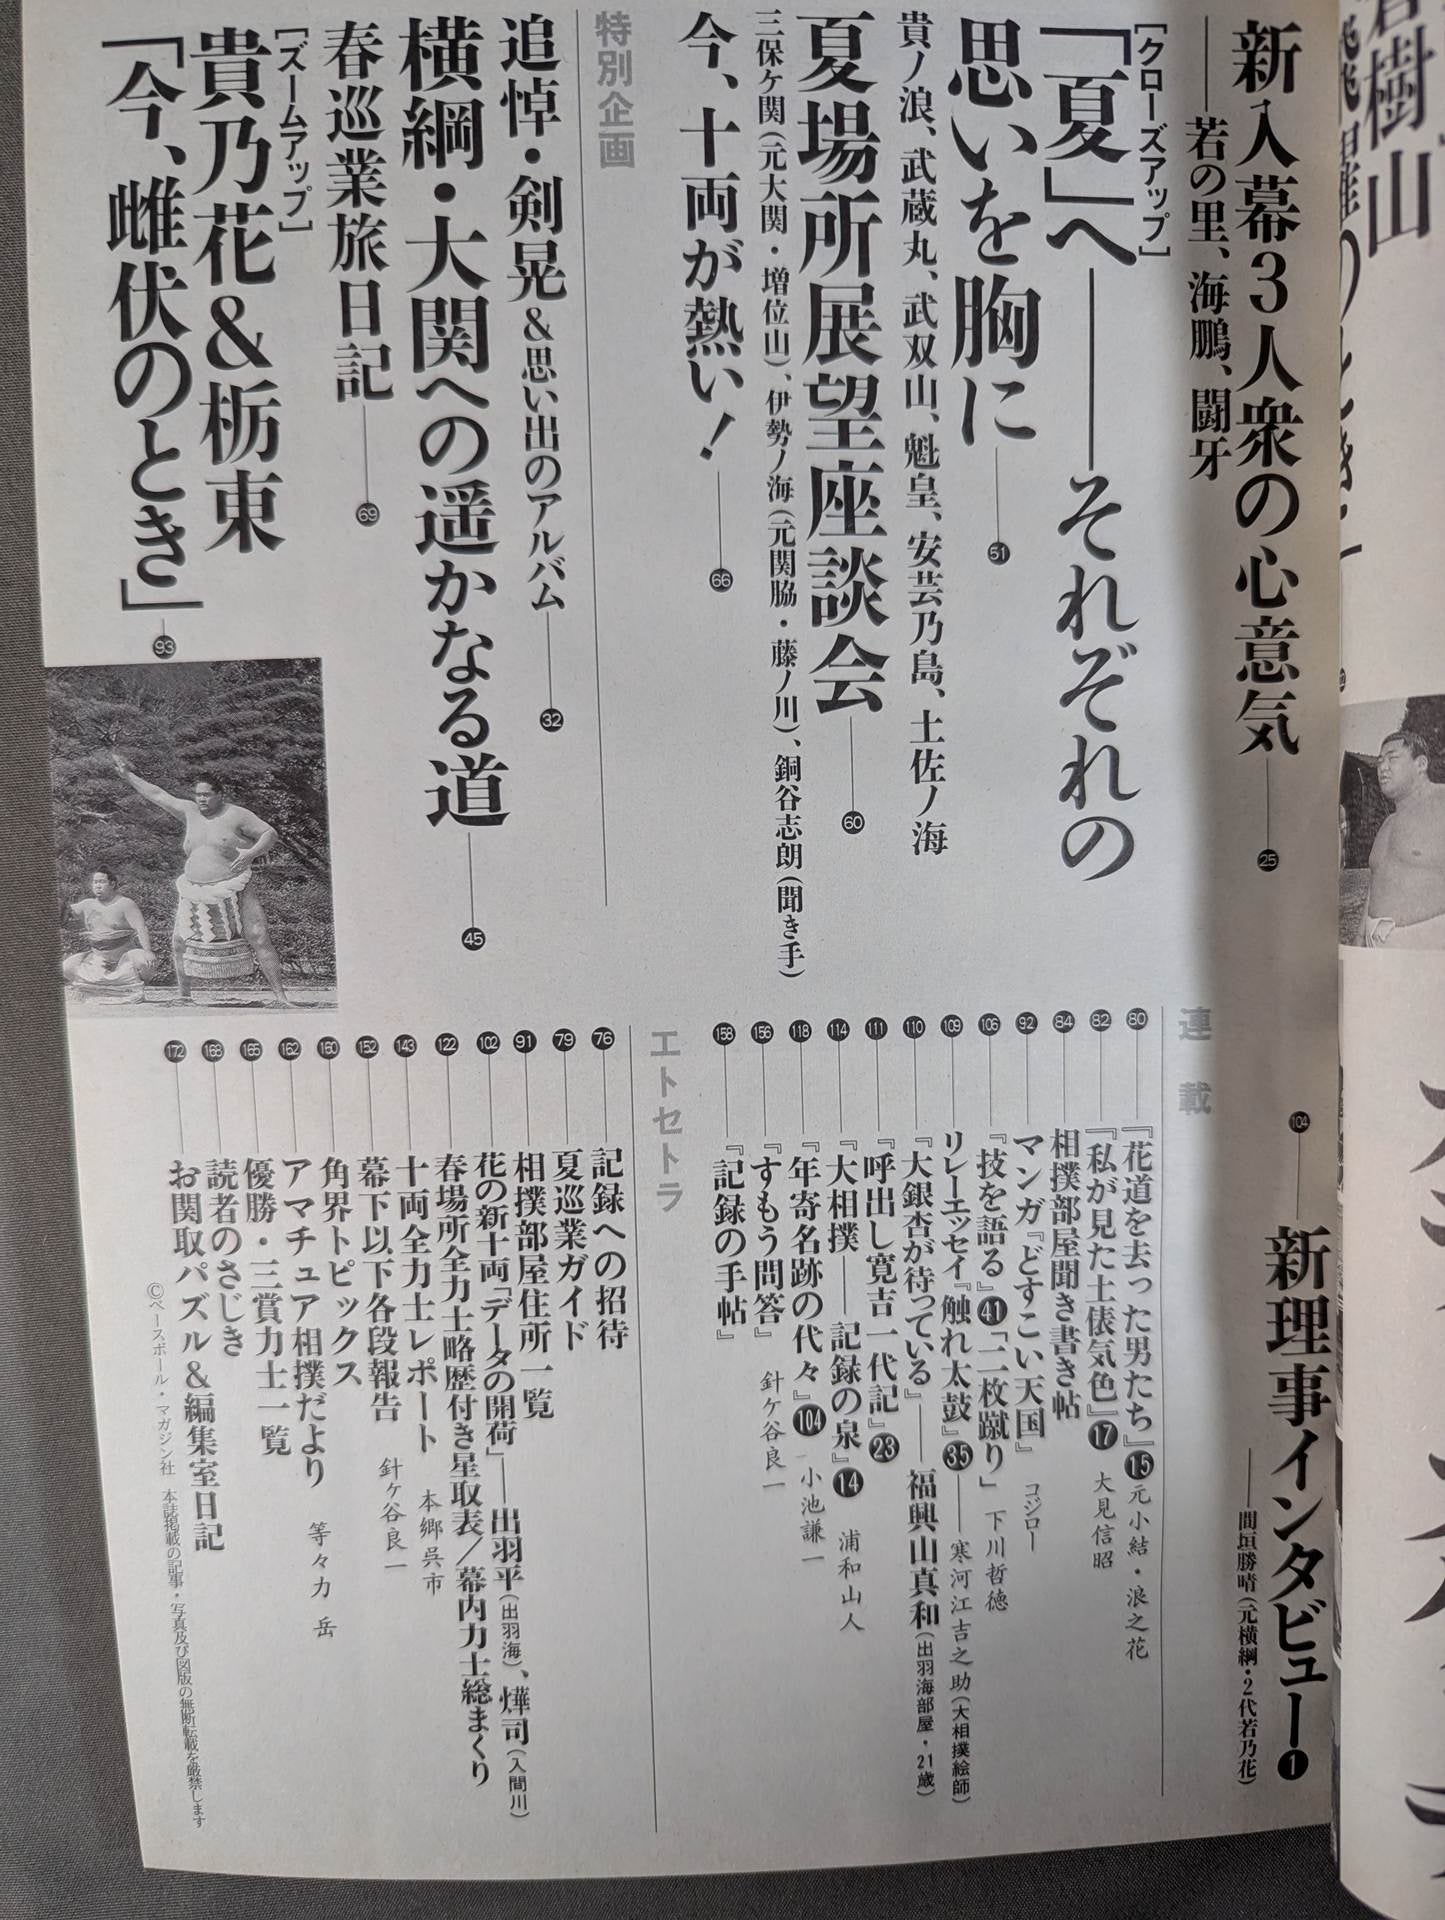 新入幕3人衆の心意気
25
――若の里、海鵬、闘牙
[クローズアップ]
「夏」へ――それぞれの
思いを胸に
51
貴ノ浪、武蔵丸、武双山、魁皇、安芸乃島、土佐ノ海
夏場所展望座談会
60
三保ケ関(元大関・増位山)、伊勢ノ海(元関脇・藤ノ川)、銅谷志朗(聞き手)
今、十両が熱い!
66
特別企画
追悼・剣晃&思い出のアルバム
32
横綱・大関への遥かなる道
45
春巡業旅日記
69
[ズームアップ]
貴乃花&栃東
「今、雌伏のとき」
93
104
新理事インタビュー❶
――間垣勝晴(元横綱・2代若乃花)
連載
80 『花道を去った男たち』15 元小結・浪之花
82 『私が見た土俵気色』17 大見信昭
84 相撲部屋聞き書き帖
92 マンガ『どすこい天国』 コジロー
106 『技を語る』41「二枚蹴り」 下川哲徳
109 リレーエッセイ『触れ太鼓』35――寒河江吉之助(大相撲絵師)
110 『大銀杏が待っている』――福興山真和(出羽海部屋・21歳)
111 『呼出し寛吉一代記』23
114 『大相撲――記録の泉』14 浦和山人
118 『年寄名跡の代々』104 小池謙一
156 『すもう問答』 針ケ谷良一
158 『記録の手帖』
エトセトラ
76 記録への招待
79 夏巡業ガイド
91 相撲部屋住所一覧
102 花の新十両「データの開荷」――出羽平(出羽海)、燁司(入間川)
122 春場所全力士略歴付き星取表/幕内力士総まくり
143 十両全力士レポート 本郷呉市
152 幕下以下各段報告 針ケ谷良一
160 角界トピックス
162 アマチュア相撲だより 等々力 岳
165 優勝・三賞力士一覧
168 読者のさじき
172 お関取パズル&編集室日記
©ベースボール・マガジン社 本誌掲載の記事・写真及び図版の無断転載を厳禁します
樹山